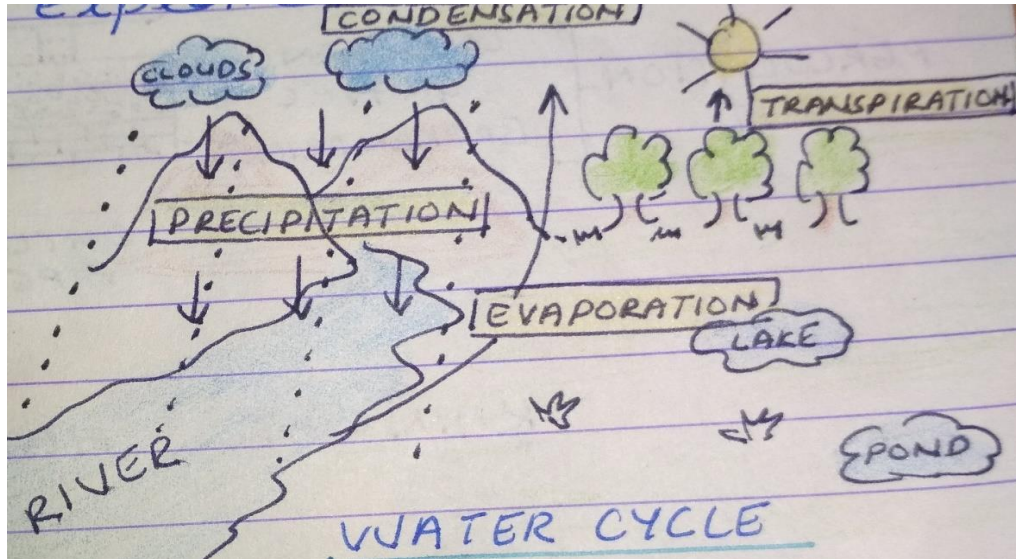 CONDENSATION
CLOUDS
TRANSPIRATION
PRECIPITATION
EVAPORATION
LAKE
RIVER
POND
WATER CYCLE